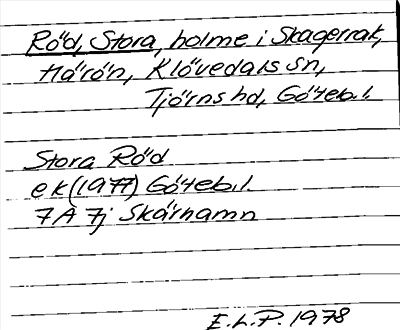 Röd, Stora, holme i Skagerrak,
Härön, Klövedals sn,
Tjörns hd, Göteb.l.
Stora Röd
ek (1977) Göteb.l.
7A 7j Skärhamn
E.L.P. 1978